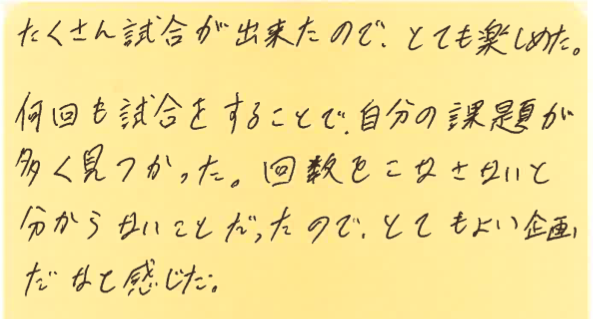 たくさん試合が出来たので、とても楽しめた。
何回も試合をすることで、自分の課題が
多く見つかった。回数をこなさないと
分からないことだったので、とてもよい企画
だなと感じた。